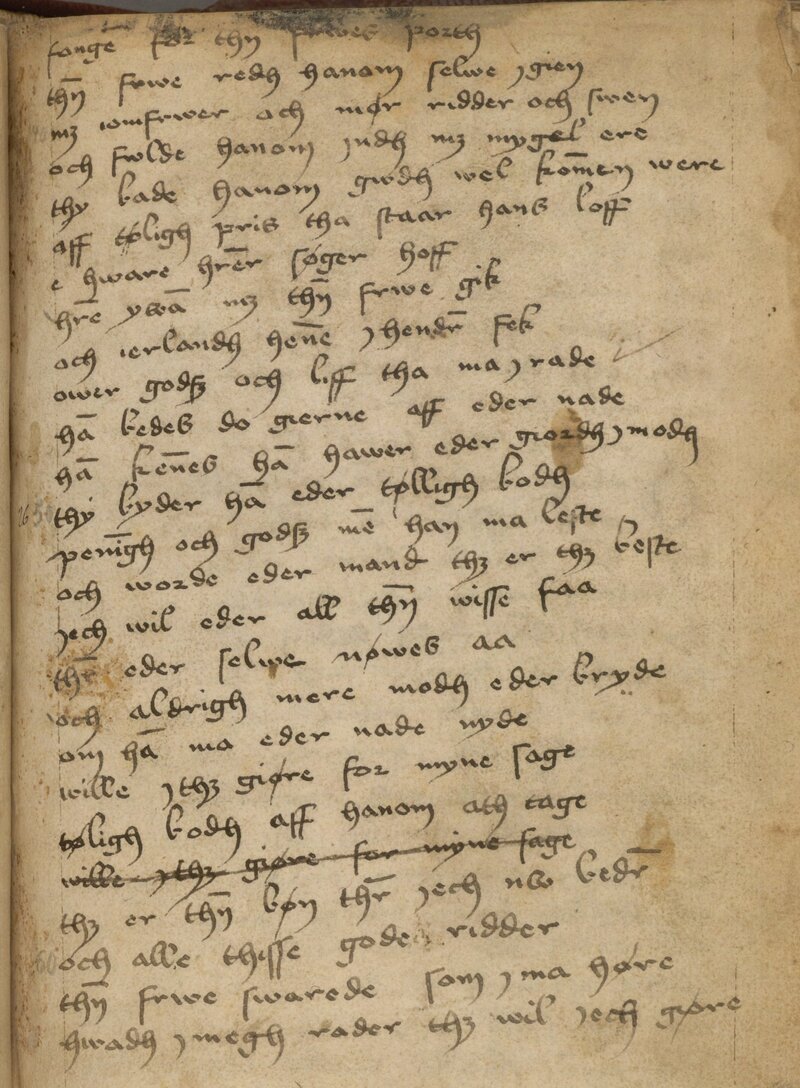 fongē for thn frwes porth
thn̄ frwe redh hanom selwe ȷgien
mz iomfrwer och mør ridder och swen
och fwlde hanom ȷndh mz mygel ere
thy bade hanom gwdh wel kom̄en were
aff tøligh pris tha staar hans loff
e hware hrēr søger hoff
hrē ywā mz thn̄ frwe gik
och ierlandh hen̄e ȷ hendr̄ fek
ower godz och liff tha ma ȷ rade
hā bedes do gierne aff eder nade
hā ken̄es hā hawer eder giordh ȷ modh
thy byder hā eder tølligh bodh
pen̄igh och godz mē han ma leste
och worde eder mand thz er thz beste
ȷech wil eder all thn̄ wisse faa
thr̄ eder selwe nøwes aa
och aldrigh mere modh eder bryde
om hā ma eder nade nyde
wille ȷ thz giøre for myne sage
tøligh bodh aff hanom ath tage
wille ȷ thz giøre for myne sage
thz er thn̄ bøn thr̄ ȷech nw bedr̄
och alle thisse gode ridder
thn̄ frwe swarede som ȷ ma høre
hwadh ȷ megh rader thz wil ȷech giøre